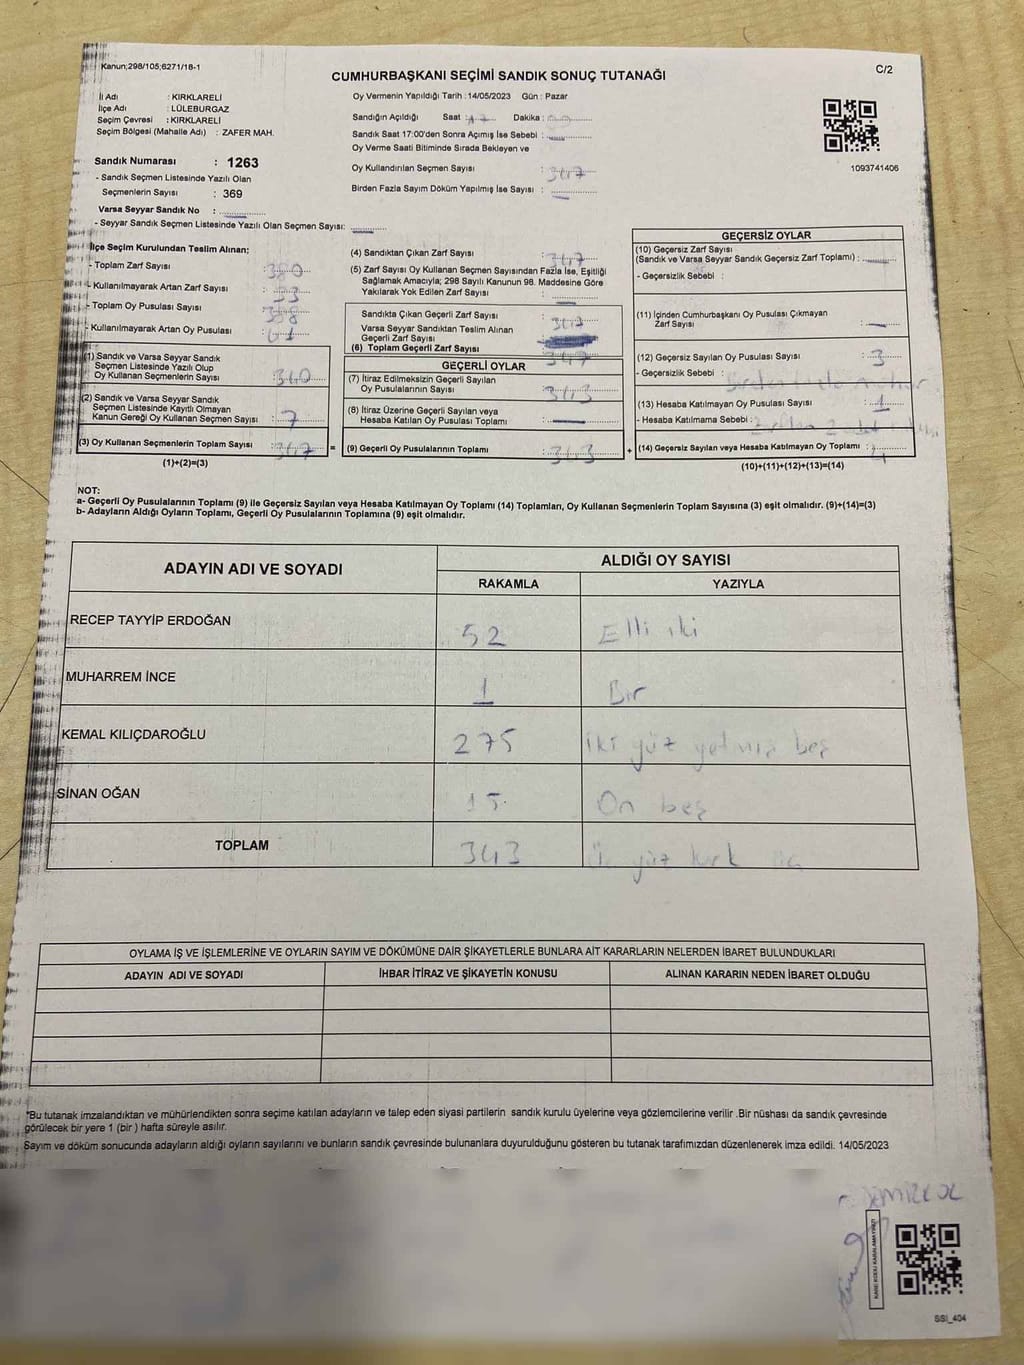 Kanun;298/105;6271/18-1
CUMHURBAŞKANI SEÇİMİ SANDIK SONUÇ TUTANAĞI
C/2
İl Adı : KIRKLARELİ
İlçe Adı : LÜLEBURGAZ
Seçim Çevresi : KIRKLARELİ
Seçim Bölgesi (Mahalle Adı) : ZAFER MAH.
Sandık Numarası : 1263
- Sandık Seçmen Listesinde Yazılı Olan
Seçmenlerin Sayısı : 369
Varsa Seyyar Sandık No :
- Seyyar Sandık Seçmen Listesinde Yazılı Olan Seçmen Sayısı:
Oy Vermenin Yapıldığı Tarih : 14/05/2023 Gün : Pazar
Sandığın Açıldığı Saat : 17 Dakika :
Sandık Saat 17:00'den Sonra Açımış İse Sebebi :
Oy Verme Saati Bitiminde Sırada Bekleyen ve
Oy Kullandırılan Seçmen Sayısı : 347
Birden Fazla Sayım Döküm Yapılmış İse Sayısı :
1093741406
İlçe Seçim Kurulundan Teslim Alınan;
- Toplam Zarf Sayısı : 380
- Kullanılmayarak Artan Zarf Sayısı : 33
- Toplam Oy Pusulası Sayısı :
- Kullanılmayarak Artan Oy Pusulası :
(1) Sandık ve Varsa Seyyar Sandık
Seçmen Listesinde Yazılı Olup
Oy Kullanan Seçmenlerin Sayısı : 340
(2) Sandık ve Varsa Seyyar Sandık
Seçmen Listesinde Kayıtlı Olmayan
Kanun Gereği Oy Kullanan Seçmen Sayısı : 7
(3) Oy Kullanan Seçmenlerin Toplam Sayısı : 347 =
(1)+(2)=(3)
(4) Sandıktan Çıkan Zarf Sayısı : 347
(5) Zarf Sayısı Oy Kullanan Seçmen Sayısından Fazla İse, Eşitliği
Sağlamak Amacıyla; 298 Sayılı Kanunun 98. Maddesine Göre
Yakılarak Yok Edilen Zarf Sayısı :
Sandıkta Çıkan Geçerli Zarf Sayısı : 347
Varsa Seyyar Sandıktan Teslim Alınan
Geçerli Zarf Sayısı
(6) Toplam Geçerli Zarf Sayısı : 347
GEÇERLİ OYLAR
(7) İtiraz Edilmeksizin Geçerli Sayılan
Oy Pusulalarının Sayısı : 343
(8) İtiraz Üzerine Geçerli Sayılan veya
Hesaba Katılan Oy Pusulası Toplamı :
(9) Geçerli Oy Pusulalarının Toplamı : 343 +
GEÇERSİZ OYLAR
(10) Geçersiz Zarf Sayısı
(Sandık ve Varsa Seyyar Sandık Geçersiz Zarf Toplamı) :
- Geçersizlik Sebebi :
(11) İçinden Cumhurbaşkanı Oy Pusulası Çıkmayan
Zarf Sayısı :
(12) Geçersiz Sayılan Oy Pusulası Sayısı : 3
- Geçersizlik Sebebi : Birden
(13) Hesaba Katılmayan Oy Pusulası Sayısı : 1
- Hesaba Katılmama Sebebi :
(14) Geçersiz Sayılan veya Hesaba Katılmayan Oy Toplamı : 4
(10)+(11)+(12)+(13)=(14)
NOT:
a- Geçerli Oy Pusulalarının Toplamı (9) ile Geçersiz Sayılan veya Hesaba Katılmayan Oy Toplamı (14) Toplamları, Oy Kullanan Seçmenlerin Toplam Sayısına (3) eşit olmalıdır. (9)+(14)=(3)
b- Adayların Aldığı Oyların Toplamı, Geçerli Oy Pusulalarının Toplamına (9) eşit olmalıdır.
ADAYIN ADI VE SOYADI
ALDIĞI OY SAYISI
RAKAMLA YAZIYLA
RECEP TAYYİP ERDOĞAN 52 Elli iki
MUHARREM İNCE 1 Bir
KEMAL KILIÇDAROĞLU 275 iki yüz yetmiş beş
SİNAN OĞAN 15 On beş
TOPLAM 343 yüz kırk
OYLAMA İŞ VE İŞLEMLERİNE VE OYLARIN SAYIM VE DÖKÜMÜNE DAİR ŞİKAYETLERLE BUNLARA AİT KARARLARIN NELERDEN İBARET BULUNDUKLARI
ADAYIN ADI VE SOYADI İHBAR İTİRAZ VE ŞİKAYETİN KONUSU ALINAN KARARIN NEDEN İBARET OLDUĞU
*Bu tutanak imzalandıktan ve mühürlendikten sonra seçime katılan adayların ve talep eden siyasi partilerin sandık kurulu üyelerine veya gözlemcilerine verilir .Bir nüshası da sandık çevresinde
görülecek bir yere 1 (bir ) hafta süreyle asılır.
Sayım ve döküm sonucunda adayların aldığı oyların sayılarını ve bunların sandık çevresinde bulunanlara duyurulduğunu gösteren bu tutanak tarafımızdan düzenlenerek imza edildi. 14/05/2023
DEMİRKOL
KARE KODU KARALAMAYINIZ!
SSİ_404